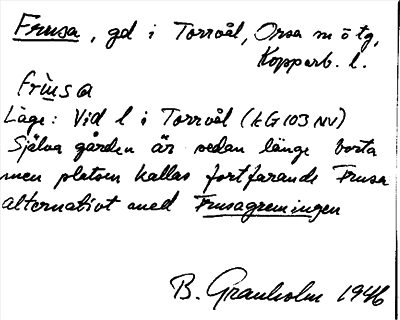 Frusa, gd i Torrvål, Orsa m ö tg,
Kopparb. l.
frùsa
Läge: Vid l i Torrvål (EG103 NV)
Själva gården är sedan länge borta
men platsen kallas fortfarande Frusa
alternativt med Frusagreningen
B. Granholm 1946